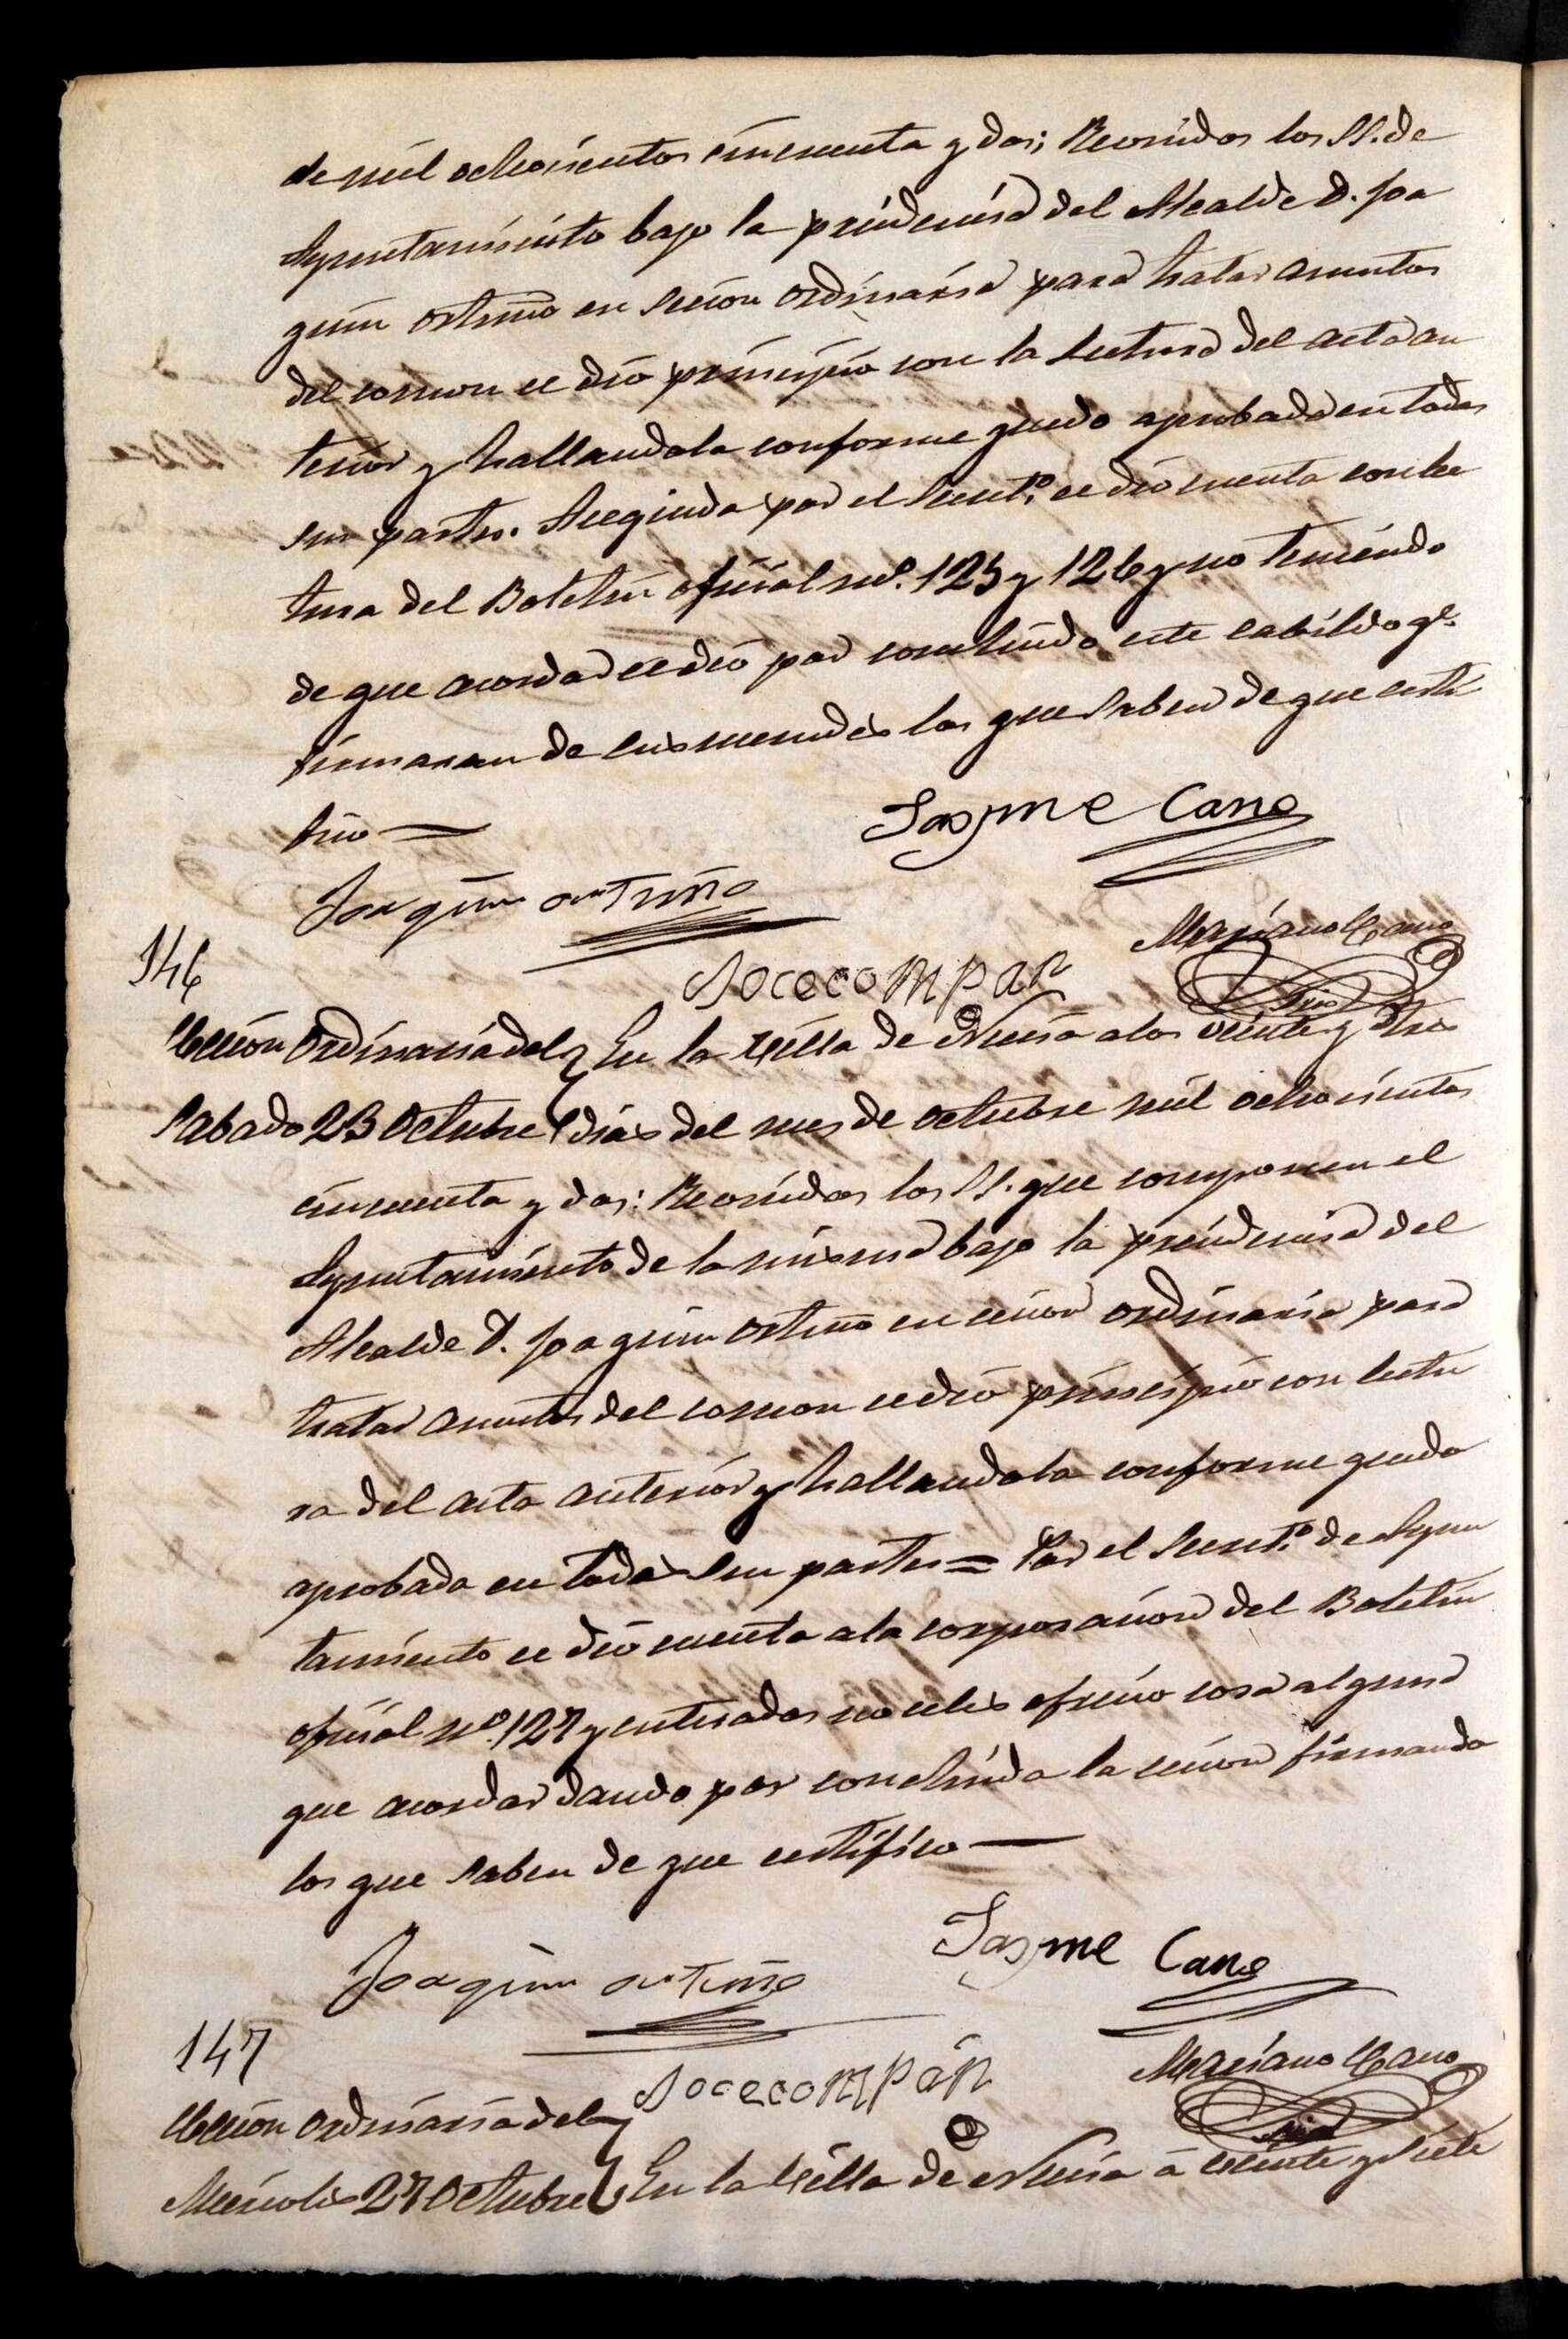 de mil ochocientos cincuenta y dos; Reonidos los SS. de
Ayuntamiento bajo la precidencia del Alcalde D. Joa
quin Ortuño en secion ordinaria para tratar asuntos
del comon se dio principio con la lectura del acta an
terior y hallandola conforme quedo aprobada en todas
sus partes. Aceguida por el Secret.º se dio cuenta con lec
tura del Boletin oficial nº. 125 y 126 y no teniendo
de que acordar se dio por concluido este cabildo q.e
firmaran de sus mercedes los que saben de que certi
fico —
Jayme Cano
Joaquin ortuño
Mariano Cano
Srio
Jocecompan
146
Cecion Ordinaria del En la Villa de Nucia a los veinte y tres
Sabado 23 Octubre dias del mes de octubre mil ochocientos
cincuenta y dos: Reonidos los SS. que componen el
Ayuntamiento de la misma bajo la precidencia del
Alcalde D. Joaquin Ortuño en cecion ordinaria para
tratar asuntos del comon se dio principio con lectu
ra del acta anterior y hallandola conforme quedo
aprobada en todas sus partes = Por el Secret.º de Ayun
tamiento se dio cuenta a la corporacion del Boletin
oficial nº. 127 y enterados no se les ofrecio cosa alguna
que acordar dando por concluida la cecion firmando
los que saben de que certifico —
Jayme Cano
Joaquin ortuño
147
Jocecompán
Mariano Cano
Srio
Cecion Ordinaria del
Miercoles 27 Octubre En la Villa de Nucia á veinte y siete